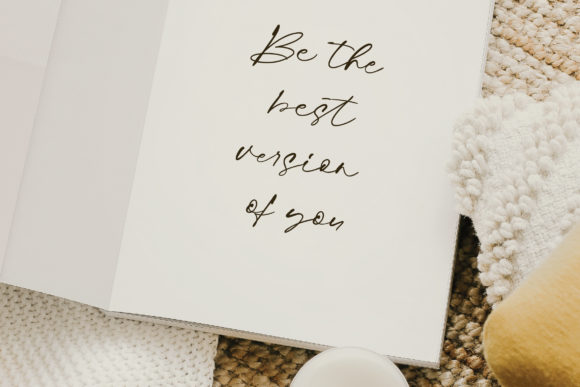 Be the
best
version
of you